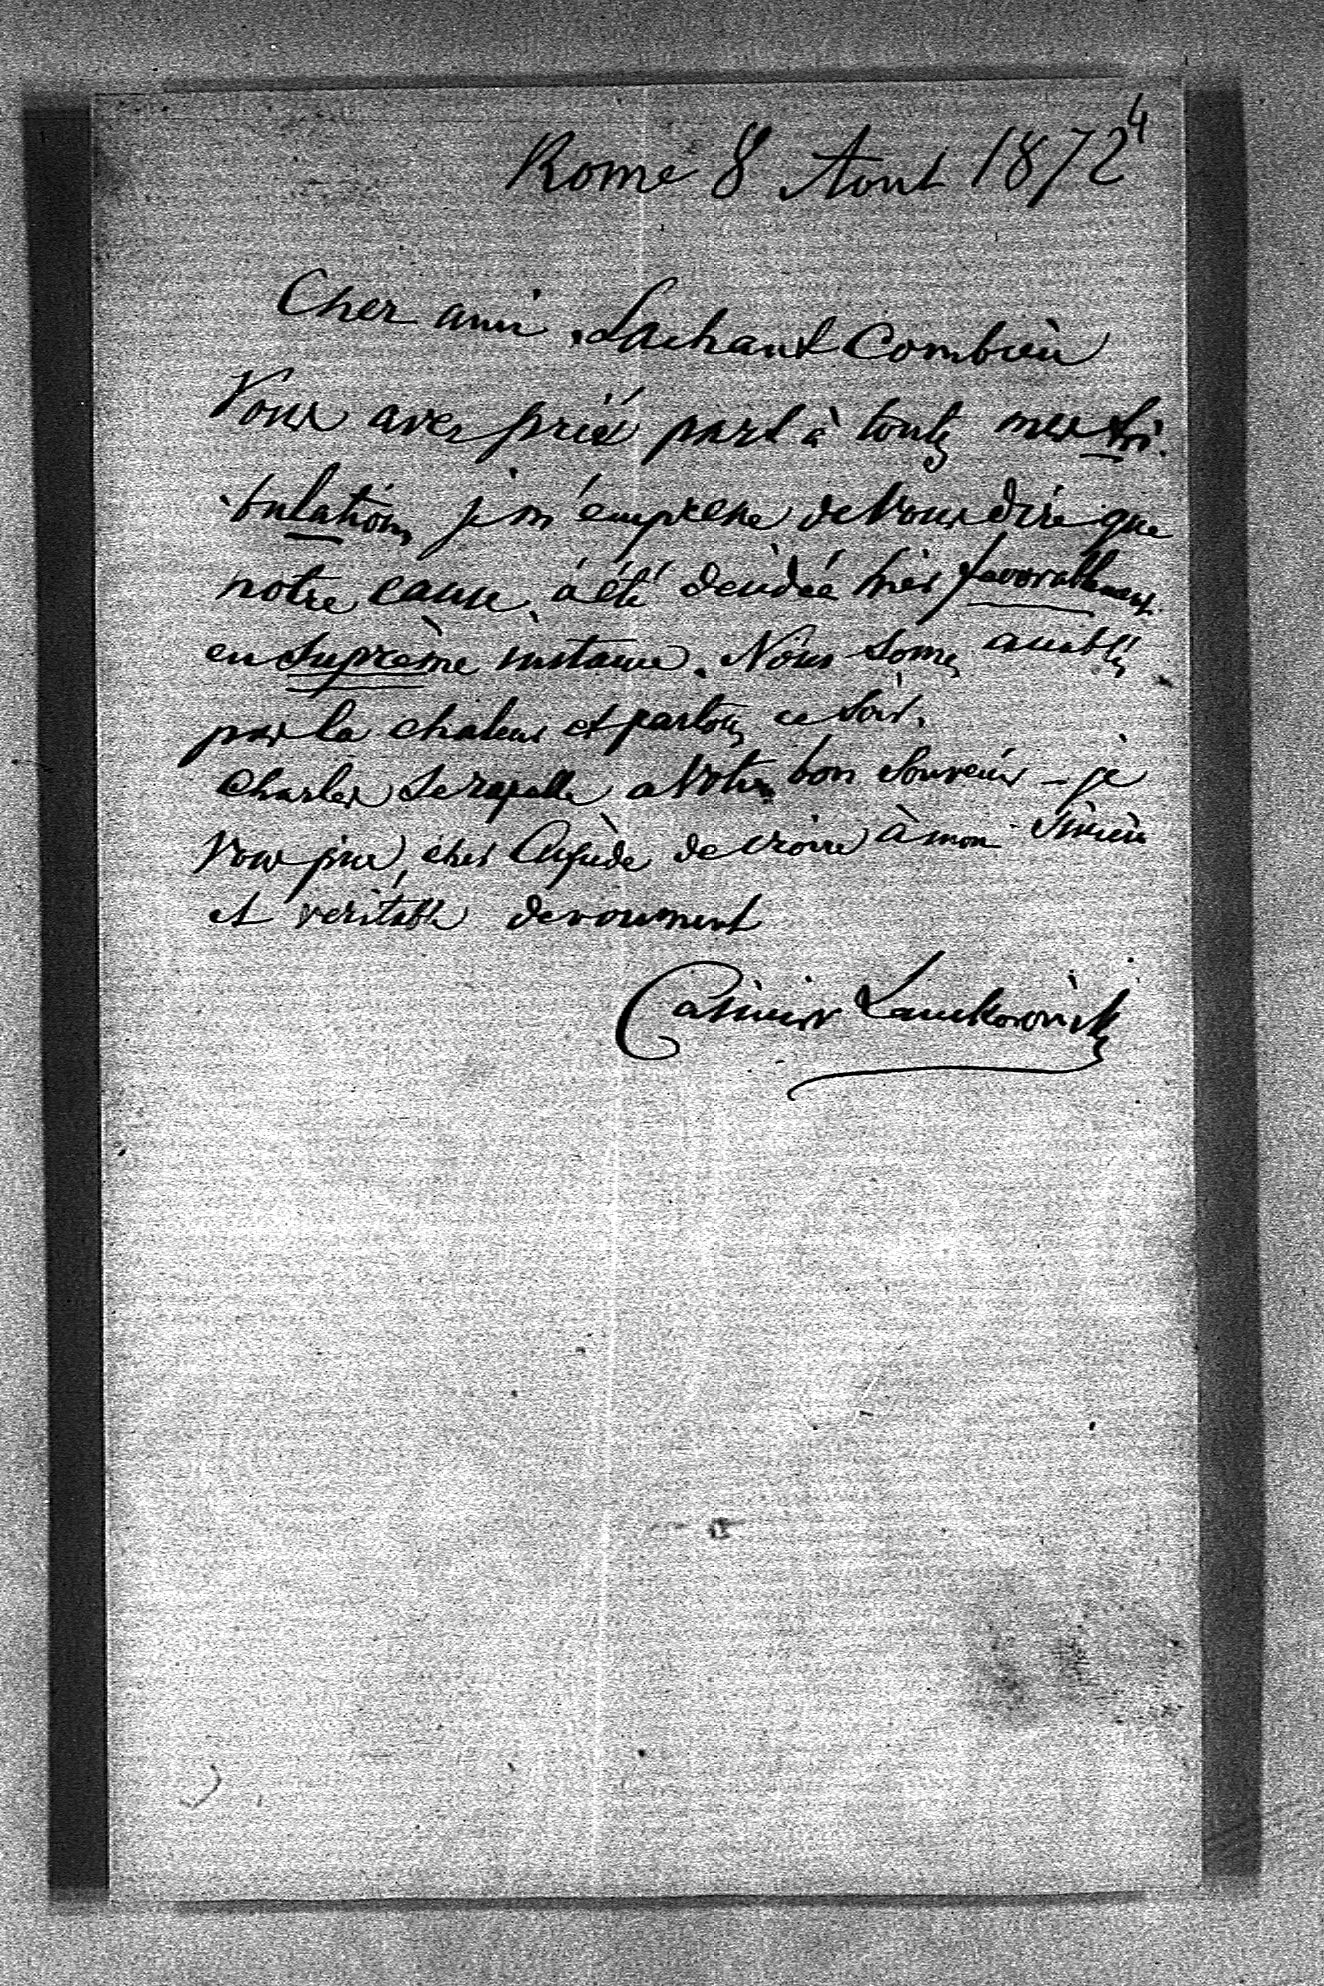 4
Rome 8 Aout 1872
Cher ami, Sachant Combien
Vous avez pris part à toutes mes tri-
bulations, je m'empresse de Vous dire que
notre cause a été décidée très favorablement
en suprème instance. Nous somes accablés
par la chaleur et partons ce soir.
Charles se rapelle a Votre bon Souvenir - je
Vous prie, cher de croire à mon Sincère
et véritable devoument
Casimir Lanckoroński